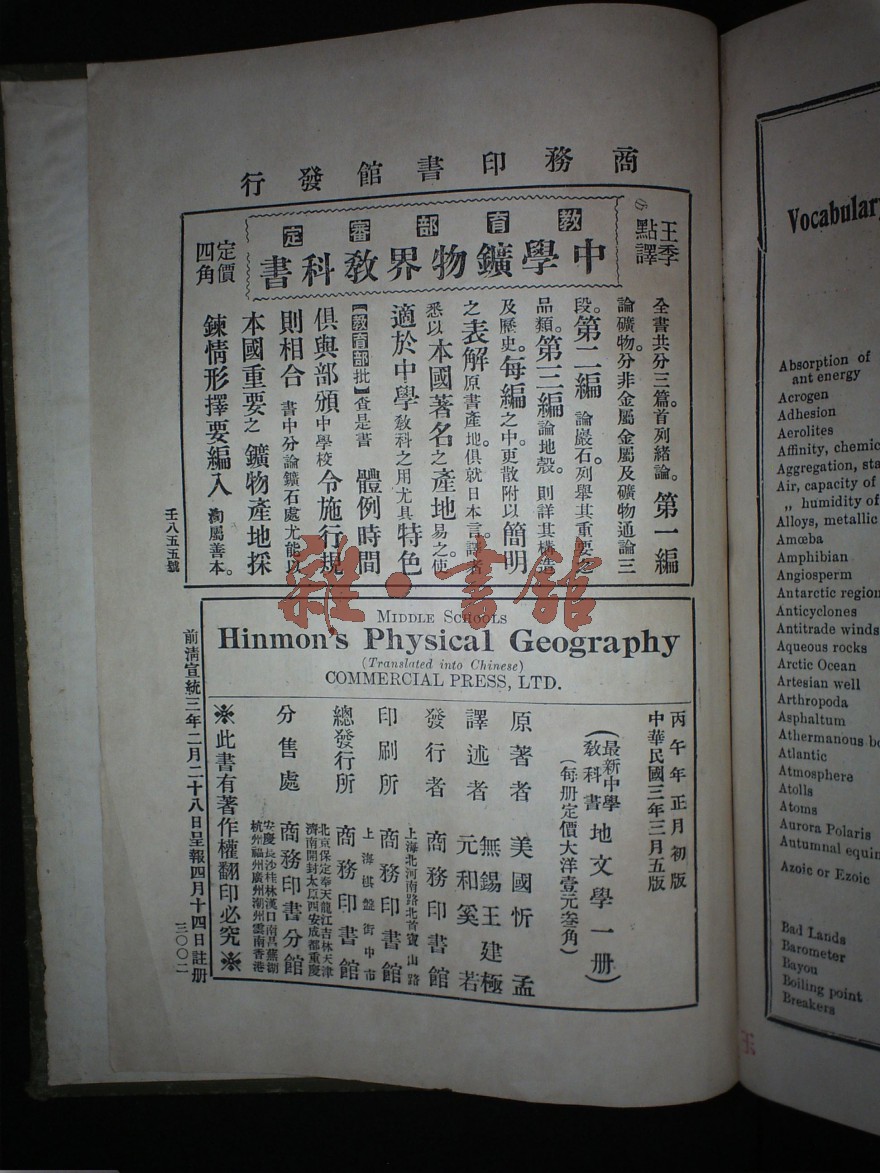 商務印書館發行
王季點譯
教育部審定
中學鑛物界教科書
定價四角
全書共分三篇。首列緒論。第一編
論礦物。分非金屬金屬及礦物通論三
段。第二編論巖石。列舉其重要之
品類。第三編論地殼。則詳其構造
及歷史。每編之中。更散附以簡明
之表解原書產地。俱就日本言。譯者
悉以本國著名之產地易之。使
適於中學教科之用尤具特色
【教育部批】查是書體例時間
俱與部頒中學校令施行規
則相合書中分論鑛石處尤能以
本國重要之鑛物產地採
鍊情形擇要編入洵屬善本。
壬八五五號
MIDDLE SCHOOLS
Hinmon's Physical Geography
(Translated into Chinese)
COMMERCIAL PRESS, LTD.
丙午年正月初版
中華民國三年三月五版
(最新中學教科書地文學一册)
(每册定價大洋壹元叁角)
原著者 美國忻孟
譯述者 無錫王建極
元和奚若
發行者 商務印書館
上海北河南路北首寶山路
印刷所 商務印書館
上海棋盤街中市
總發行所 商務印書館
北京保定奉天龍江吉林天津
濟南開封太原西安成都重慶
分售處 商務印書分館
安慶長沙桂林漢口南昌蕪湖
杭州福州廣州潮州雲南香港
※此書有著作權翻印必究※
前清宣統三年二月二十八日呈報四月十四日註册
三〇〇二
Vocabulary
Absorption of
ant energy
Acrogen
Adhesion
Aerolites
Affinity, chemic
Aggregation, sta
Air, capacity of
„ humidity of
Alloys, metallic
Amœba
Amphibian
Angiosperm
Antarctic region
Anticyclones
Antitrade winds
Aqueous rocks
Arctic Ocean
Artesian well
Arthropoda
Asphaltum
Athermanous bo
Atlantic
Atmosphere
Atolls
Atoms
Aurora Polaris
Autumnal equin
Azoic or Ezoic
Bad Lands
Barometer
Bayou
Boiling point
Breakers
雜·書館